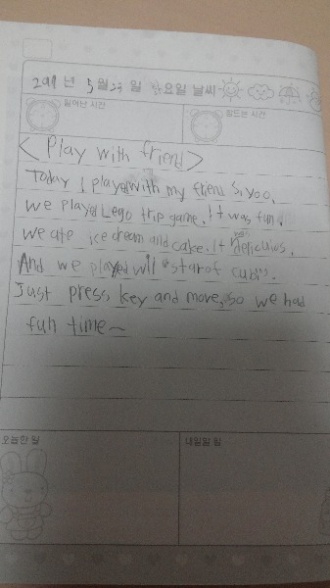 년 5월 23일 요일 날씨
일어난 시간 잠드는 시간
< Play with friend >
Today I played with my friend Siyoo.
We played Lego trip game. It was fun.
we ate ice cream and cake. It was delicious.
And we played will star of
Just press key and move, so we had
fun time~
오늘한 일 내일할 일